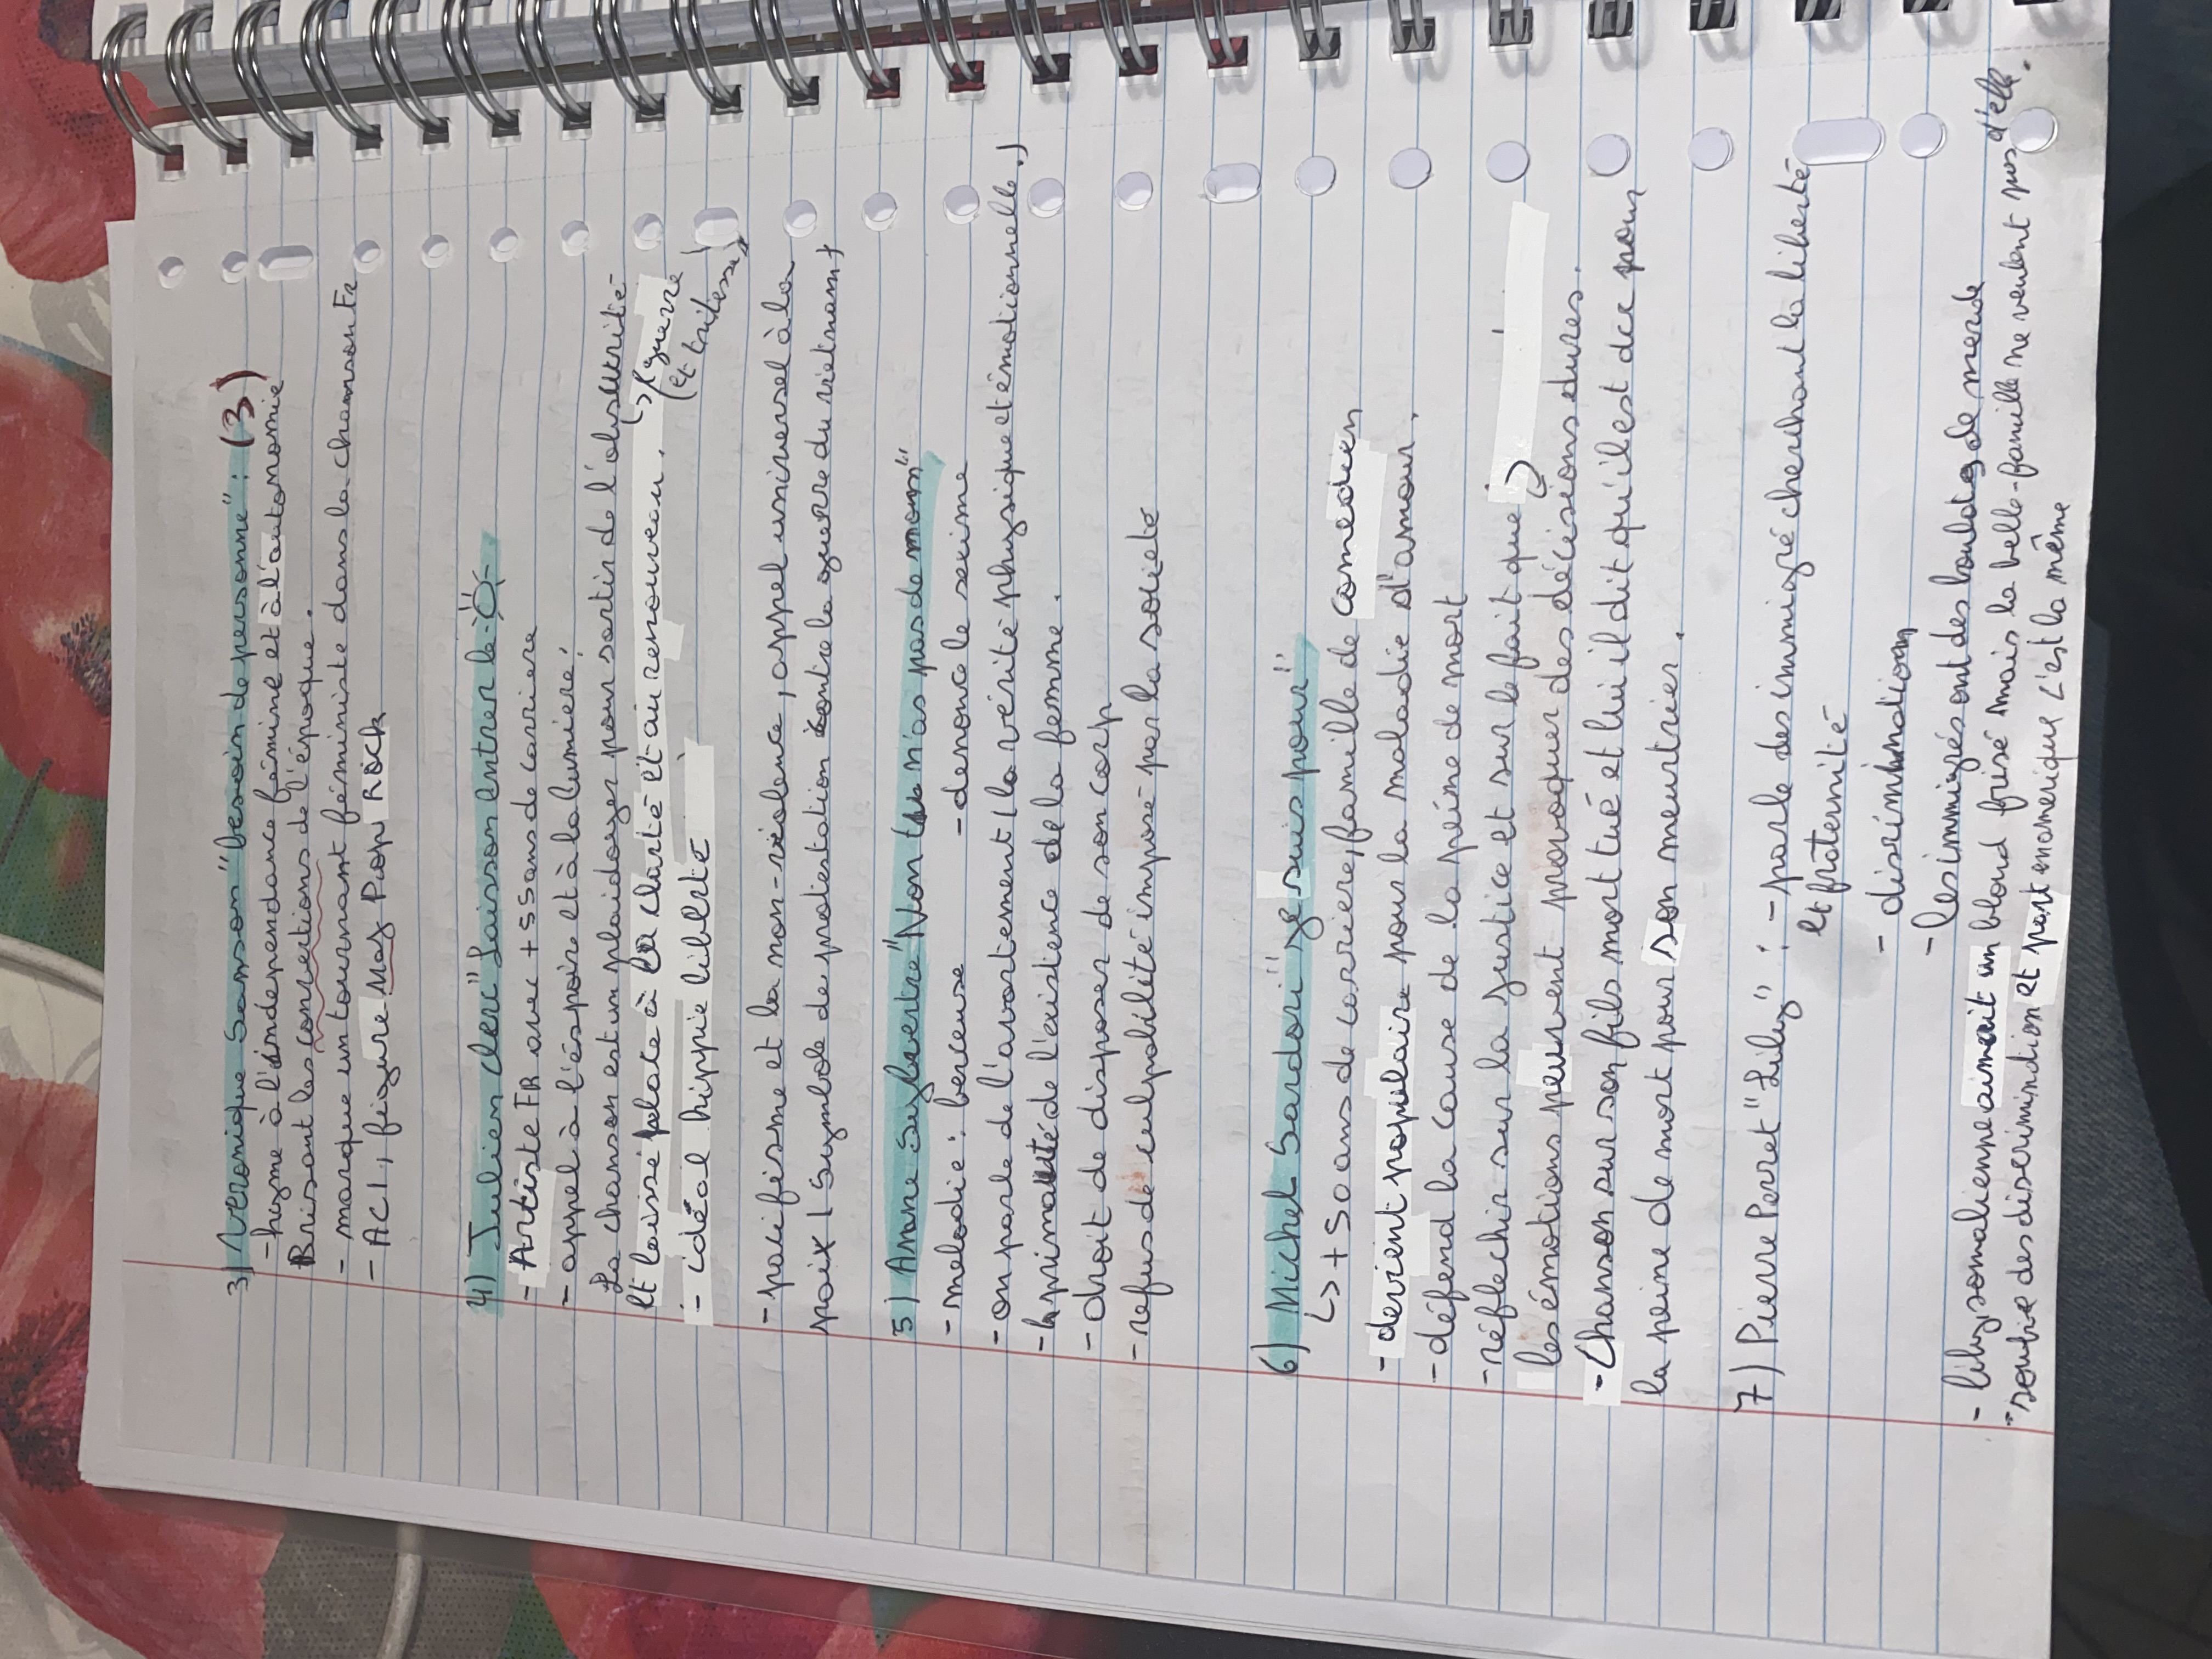 3) Veronique Sanson "besoin de personne" : (3)
- hyme à l'independance féminine et à l'autonomie
Brisant les convections de l'époque.
- marque un tournant féministe dans la chanson Fr
- ACI, figure Maj Pop Rock
4) Julien Clerc "Laisson entrer le
- Artiste FR avec + 55 ans de carriere
- appel à l'éspoir et à la lumiere,
La chanson est un plaidoyer pour sortir de l'obscurité
et laissé place à la clarté et au renouveau. ↳ (guerre
(et tritesse)
- idéal hippie liberté
- pacifisme et la non-violence, appel universel à la
paix (Symbole de protestation contre la guerre du vietnam)
5) Anne Sylvestre "Non tu n'as pas de nom"
- melodie : berceuse - denonce le sexime
- on parle de l'avortement (la vérité physique et émotionnelle.)
- la primauté de l'existence de la femme.
- droit de disposer de son corp
- refus de culpabilité imposé par la societé
6) Michel Sardou "je suis pour"
↳ + 50 ans de carriere, famille de comedien
- devient populaire pour la maladie d'amour.
- défend la cause de la peine de mort
- réflechir sur la justice et sur le fait que
les émotions peuvent provoquer des décisions dures.
- Chanson sur son fils mort tué et lui il dit qu'il est dcc pour
la peine de mort pour son meurtrier.
7) Pierre Perret "Lily" : - parle des immigré cherchant la liberté
et fraternité
- discrimination
- les immigrés ont des boulots de merde
- lily, somalienne aimait un blond frisé mais la belle-famille ne veulent pas d'elle.
- soufre des discrimindion et part en amerique c'est la même